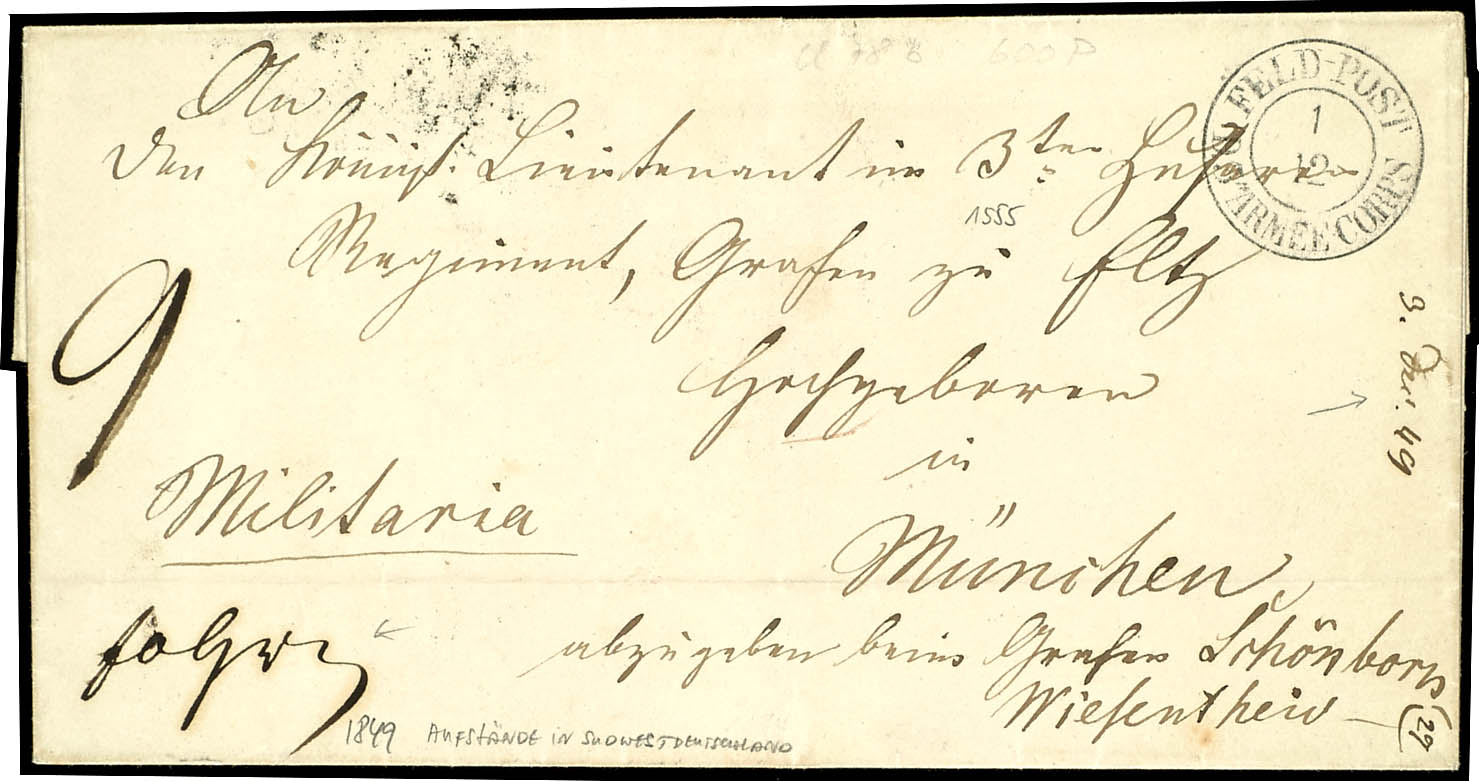 An
den Königl. Lieutenant im 3ten Husaren
Regiment, Grafen zu Eltz
Hochgeboren
in
München,
abzugeben beim Grafen Schönborn
Wiesentheid
Militaria
9
FELD-POST
1
12
ARMÉE CORPS
1555
600 P
3. Dec. 49
29
1849 AUFSTÄNDE IN SÜDWESTDEUTSCHLAND